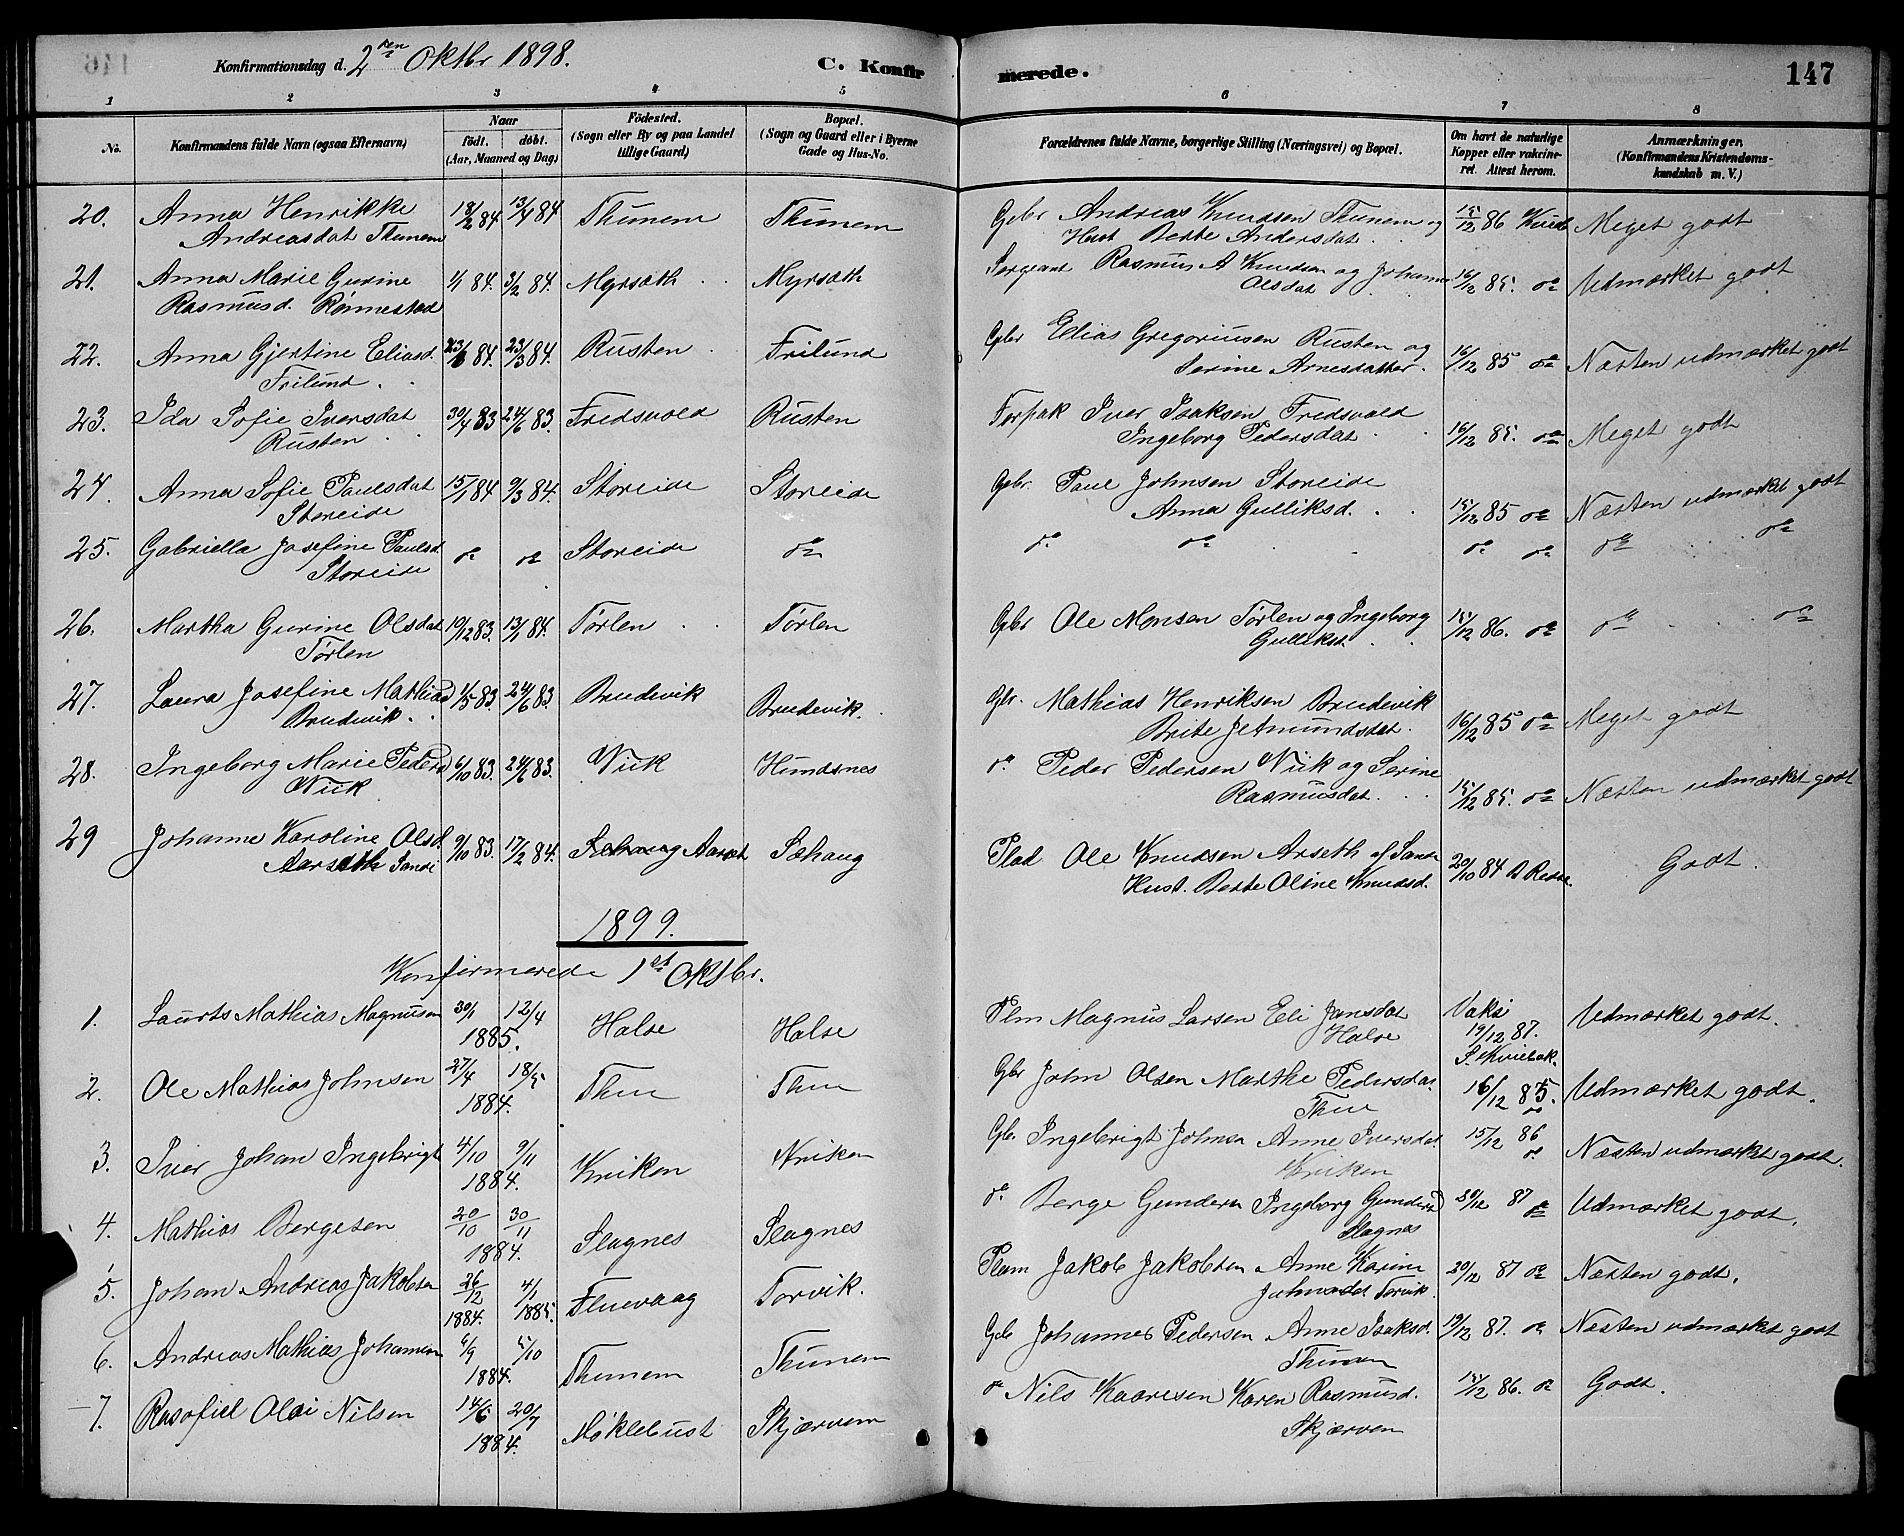 Konfirmationsdag d. 2den Oktbr 1898. C. Konfirmerede. 147
1 2 3 4 5 6 7 8
No. Konfirmandens fulde Navn (ogsaa Efternavn) Naar født. døbt. (Aar, Maaned og Dag) Fødested. (Sogn eller By og paa Landet tillige Gaard) Bopæl. (Sogn og Gaard eller i Byerne Gade og Hus-No. Forældrenes fulde Navne, borgerlige Stilling (Næringsvei) og Bopæl. Om havt de naturlige Kopper eller vakcineret. Attest herom. Anmærkninger. (Konfirmandens Kristendomskundskab m. V.)
20. Anna Henrikke 18/2 84 13/4 84 Thunem Thunem Gbr Andreas Knudsen Thunem og 15/12 86 Meget godt
Andreasdat Thunem Hust Berte Andersdat.
21. Anna Marie Gurine 1/1 84. 3/2 84. Myrsæth Myrsæth Sergeant Rasmus A Knudsen og Johanne 16/12 85. do Udmærket godt
Rasmusd. Rønnestad Olsdat
22. Anna Gjertine Eliasd. 84. 23/3 84. Rusten Frilund Gbr Elias Gregoriussen Rusten og 16/12 85 do Næsten udmærket godt
Frilund. Serine Arnesdatter.
23. Ida Sofie Iversdat 30/4 83 24/6 83. Fredsvold Rusten Forpak Iver Isaksen Fredsvold 16/12 85. do Meget godt
Rusten Ingeborg Pedersdat.
24. Anna Sofie Paulsdat 15/1 84 9/3 84. Storeide Storeide Gbr. Paul Johnsen Storeide 15/12 85 do Næsten udmærket godt
Storeide Anna Gulliksd.
25. Gabriella Josefine Paulsd. do do Storeide do do do do do do do
Storeide
26. Martha Gurine Olsdat 19/12 83. 13/1 84. Tørlen Tørlen Gbr Ole Monsen Tørlen og Ingeborg 15/12 86. do do do
Tørlen Gulliksd.
27. Laura Josefine Mathiasd 1/5 83 24/6 83. Brudevik Brudevik. Gbr. Mathias Henriksen Brudevik 16/12 85 do Meget godt
Brudevik. Brite Jetmundsdat.
28. Ingeborg Marie Pedersd 6/10 83. 24/6 83. Viik Hundsnes do Peder Pedersen Viik og Serine 15/12 85. do Næsten udmærket godt
Viik Rasmusdat.
29 Johanne Karoline Olsd. 9/10 83. 17/2 84. Sæhaug Aarset Sæhaug Plad Ole Knudsen Arseth af Sande 20/10 84 Godt.
Aarseth Sande Hust. Berte Oline Knudsd.
1899.
Konfirmerede 1st Oktbr.
1. Laurits Mathias Magnusen 30/1 12/4 1885. Halse Halse Plm Magnus Larsen Eli Jansdat Halse Vaks 19/12 87. Udmærket godt.
2. Ole Mathias Johnsen 27/4 18/5 1884. Thue Thue Gbr John Olsen Marthe Pedersdat Thue 16/12 85. do Udmærket godt.
3. Iver Johan Ingebrigt 4/10 9/11 1884. Kviken Kviken Gbr Ingebrigt Johnsen Anne Iversdat Kviken 15/12 86 do Næsten udmærket godt.
4. Mathias Bergesen 20/10 30/11 1884. Slagnes Slagnes do Berge Gundersen Ingeborg Gundersd Slagnes 20/12 87 do Udmærket godt.
5. Johan Andreas Jakobsen 26/12 1884. 4/1 1885. Fluevaag Torvik. Plam Jakob Jakobsen Anne Karine Johnsdat Torvik. 20/12 87 do Næsten godt.
6. Andreas Mathias Johannesen 6/9 5/10 1884. Thunem Thunem Gbr Johannes Pedersen Anne Isaksd. Thunem 19/12 87. do Næsten udmærket godt
7. Olai Nilsen 14/6 20/7 1884. Møklebust Skjærvem do Nils Kaaresen Karen Rasmusd. Skjærven 15/12 86. do Godt.